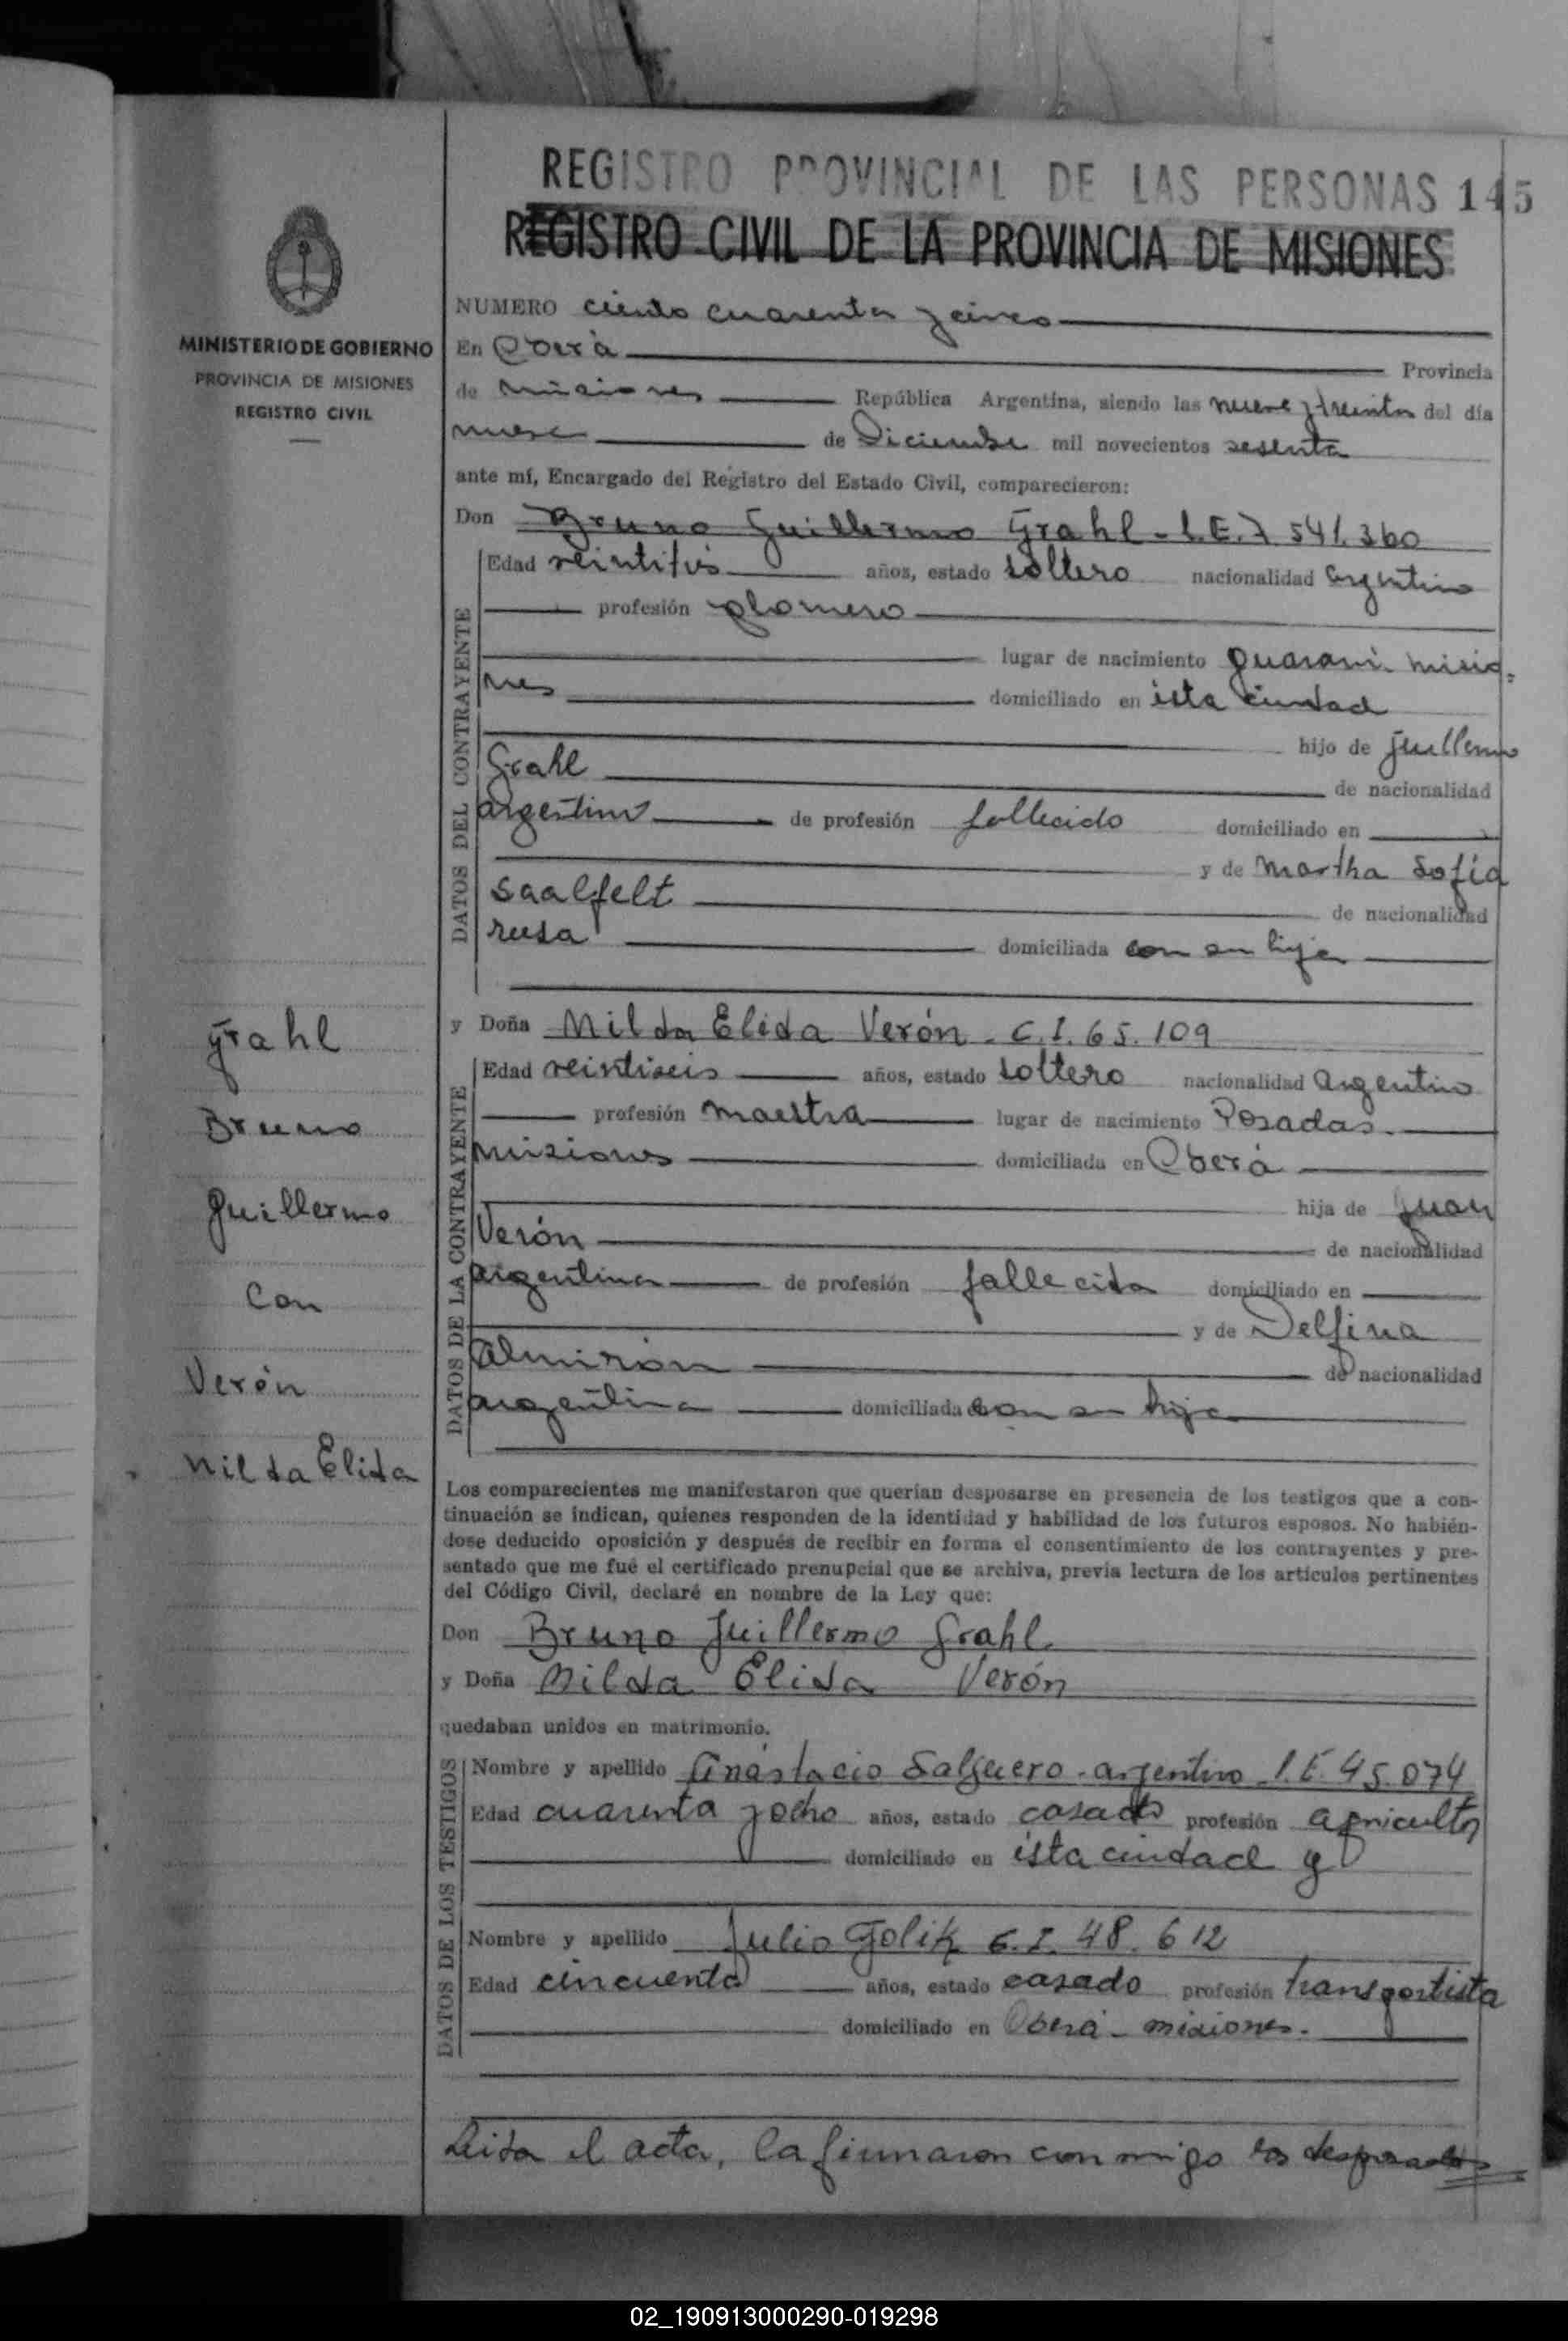 REGISTRO PROVINCIAL DE LAS PERSONAS 145
REGISTRO CIVIL DE LA PROVINCIA DE MISIONES
MINISTERIO DE GOBIERNO
PROVINCIA DE MISIONES
REGISTRO CIVIL
NUMERO ciento cuarenta y cinco
En Oberá Provincia
de Misiones República Argentina, siendo las nueve y treinta del día
nueve de Diciembre mil novecientos sesenta
ante mí, Encargado del Registro del Estado Civil, comparecieron:
Don Bruno Guillermo Grahl - L.E. 7 541.360
DATOS DEL CONTRAYENTE
Edad años, estado soltero nacionalidad argentino
profesión plomero
lugar de nacimiento Guaraní. Misio-
nes domiciliado en ésta ciudad
hijo de Guillermo
Grahl de nacionalidad
argentino de profesión fallecido domiciliado en
y de Martha Sofía
Saalfelt de nacionalidad
rusa domiciliada con su hijo
y Doña Nilda Elida Verón - C.I. 65.109
DATOS DE LA CONTRAYENTE
Edad veintiseis años, estado soltero nacionalidad argentino
profesión maestra lugar de nacimiento Posadas.
Misiones domiciliada en Oberá
hija de Juan
Verón de nacionalidad
argentina de profesión fallecido domiciliado en
y de Delfina
Almirón de nacionalidad
argentina domiciliada con su hija
Grahl
Bruno
Guillermo
con
Verón
Nilda Elida
Los comparecientes me manifestaron que querían desposarse en presencia de los testigos que a con-
tinuación se indican, quienes responden de la identidad y habilidad de los futuros esposos. No habién-
dose deducido oposición y después de recibir en forma el consentimiento de los contrayentes y pre-
sentado que me fué el certificado prenupcial que se archiva, previa lectura de los artículos pertinentes
del Código Civil, declaré en nombre de la Ley que:
Don Bruno Guillermo Grahl.
y Doña Nilda Elida Verón
quedaban unidos en matrimonio.
DATOS DE LOS TESTIGOS
Nombre y apellido Anástacio Salguero - argentino L.E. 45.074
Edad cuarenta y ocho años, estado casado profesión agricultor
domiciliado en ésta ciudad y
Nombre y apellido Julio Golik C.I. 48.612
Edad cincuenta años, estado casado profesión transportista
domiciliado en Oberá - misiones.
Leida el acta, la firmaron conmigo los desposados
02_190913000290-019298